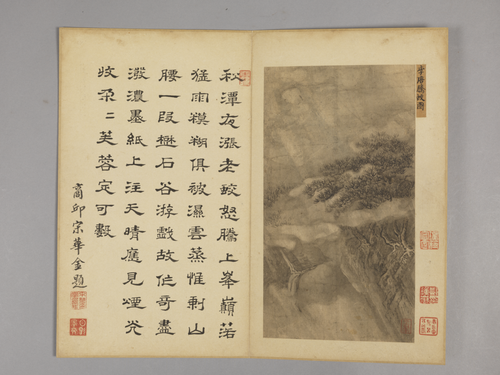 秋潭夜漲老蛟怒騰上峯巔落
猛雨糢糊俱被濕雲蒸惟剩山
腰一段樹石谷游戲故作奇盡
潑濃墨紙上注天晴應見煙光
收朵二芙蓉定可數
商邱宋華金題